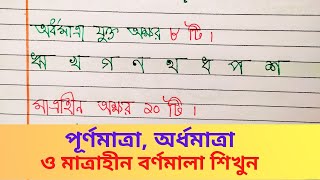 অর্ধমাত্রা যুক্ত অক্ষর ৮ টি।
ঋ খ গ ণ থ ধ প শ
মাত্রাহীন অক্ষর ১০ টি।
পূর্ণমাত্রা, অর্ধমাত্রা
ও মাত্রাহীন বর্ণমালা শিখুন